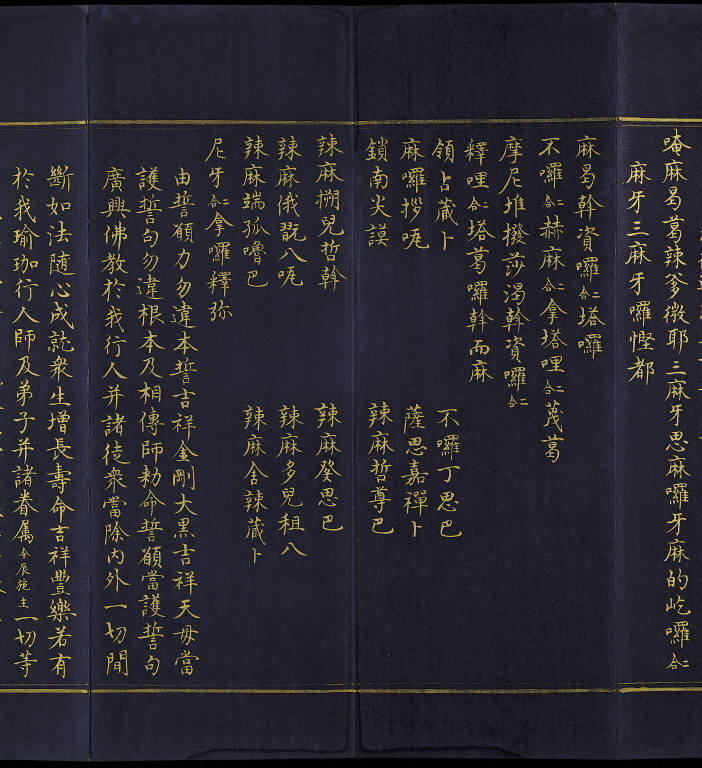 唵麻曷葛辣爹微耶三麻牙思麻囉牙麻的屹囉二合
麻牙三麻牙囉慳都
麻曷斡資囉二合塔囉
不囉二合赫麻二合拿塔哩二合蔑葛
摩尼堆撥莎渴斡資囉二合
釋哩二合塔葛囉斡而麻
領占藏卜 不囉丁思巴
麻囉拶吪 薩思嘉禪卜
鎖南尖謨 辣麻哲尊巴
辣麻搠兒哲斡 辣麻癸思巴
辣麻俄翫八吪 辣麻多兒租八
辣麻端孤嚕巴 辣麻舍辣藏卜
尼牙二合拿囉釋弥
由誓願力勿違本誓吉祥金剛大黑吉祥天母當
護誓句勿違根本及相傳師勅命誓願當護誓句
廣興佛教於我行人并諸徒衆當除内外一切間
斷如法随心成就衆生增長壽命吉祥豐樂若有
於我瑜珈行人師及弟子并諸眷属今辰施主一切等